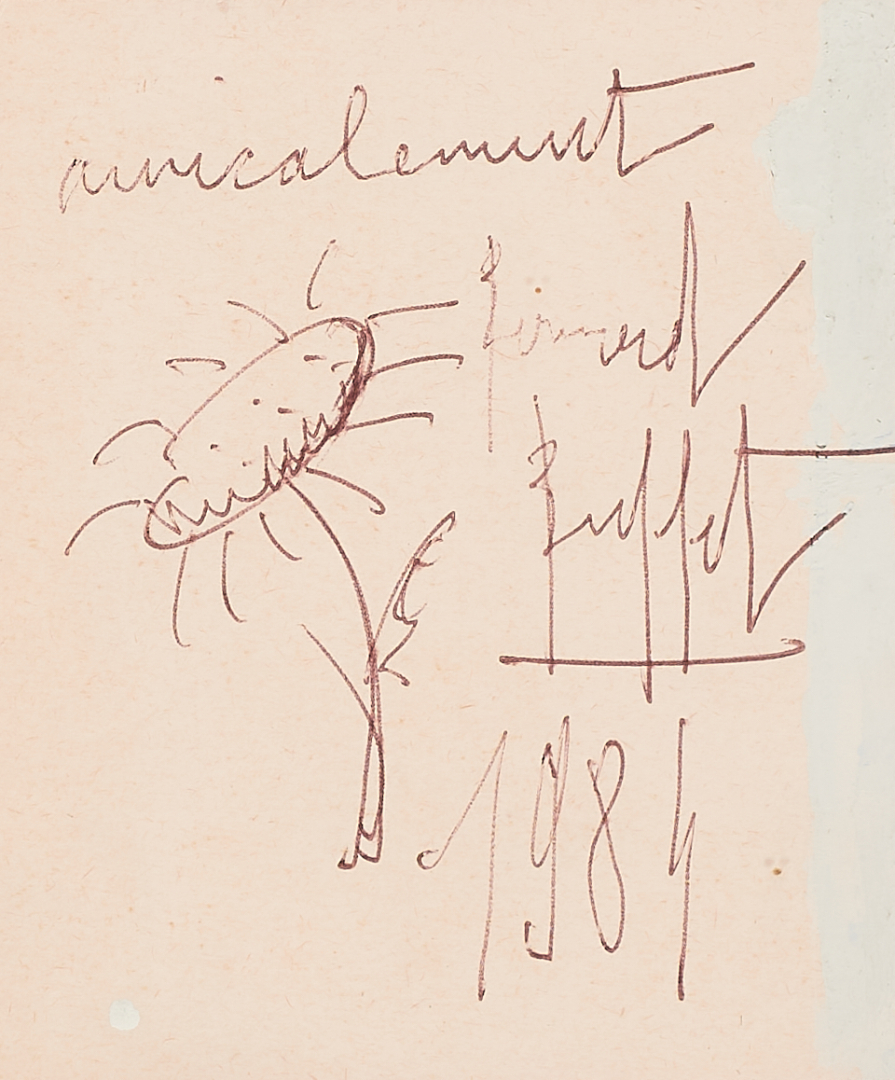 amicalement
Bernard
Buffet
1984